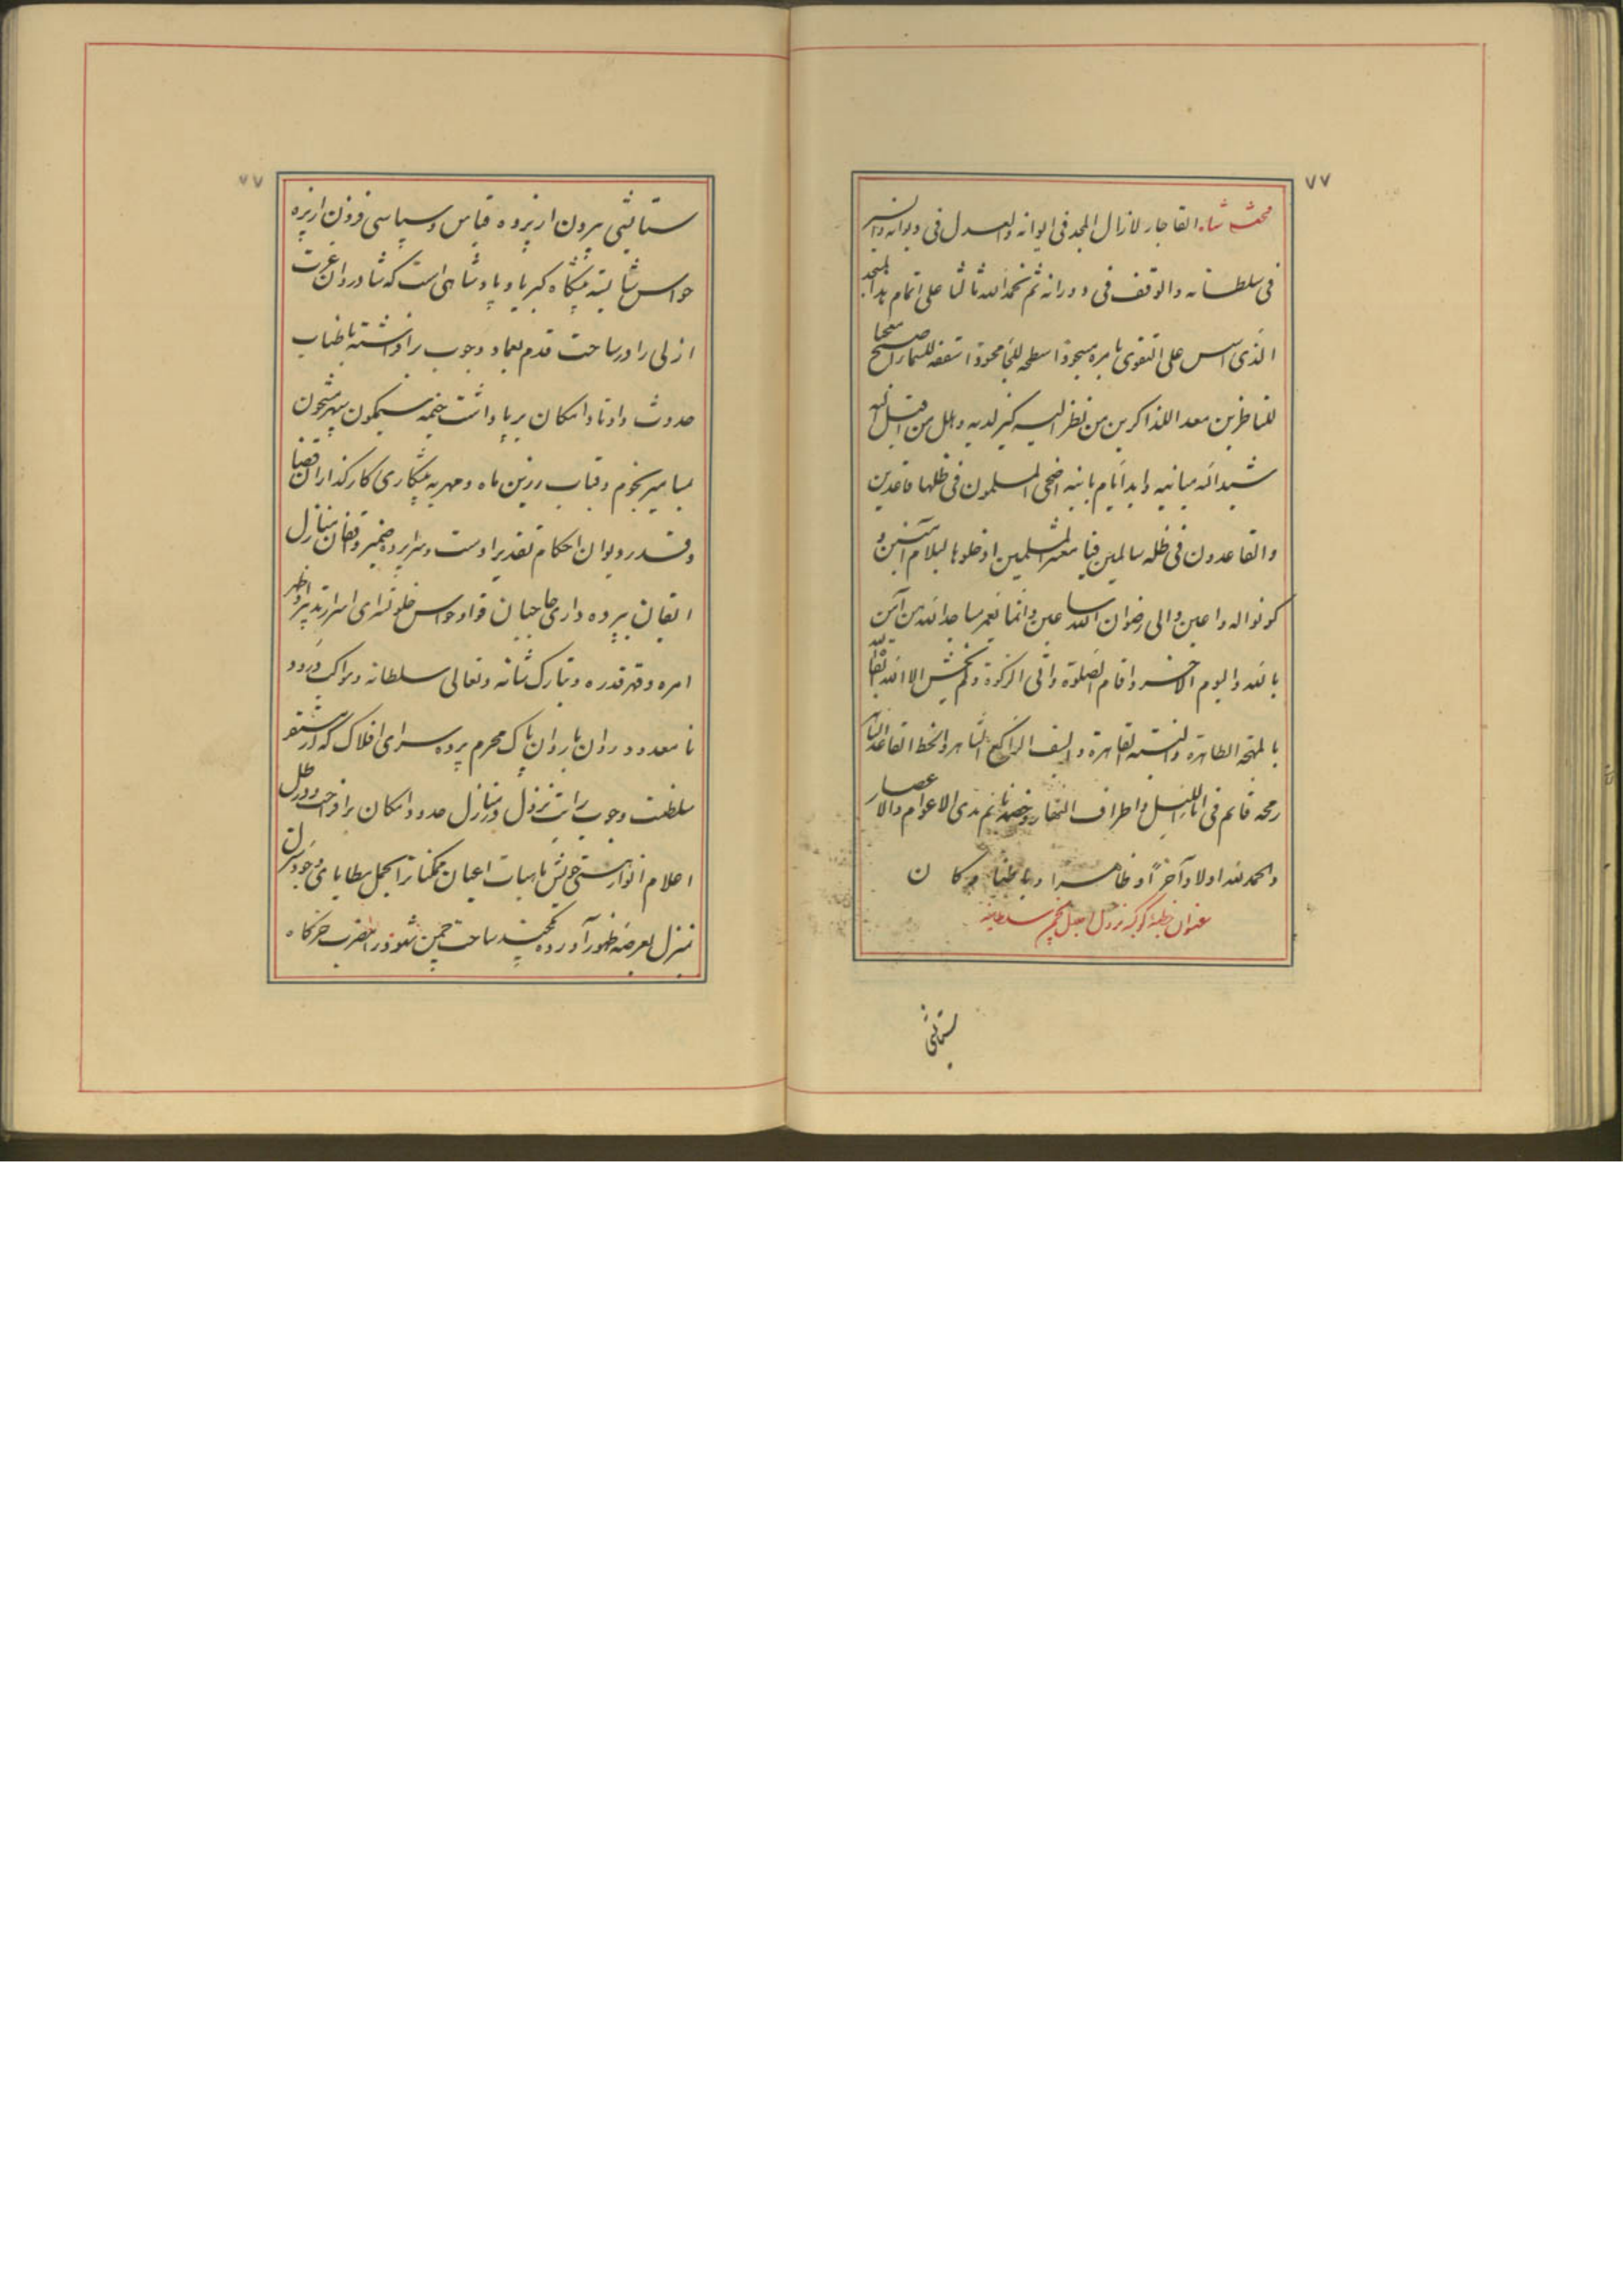 ۷۷
محمد شاه القاجار لازال المجد فی ایوانه والعدل فی دیوانه والنسر
فی سلطانه والوقف فی دورانه ثم نحمد الله ثالثا علی اتمام هذا المسجد
الذی اسس علی التقوی بامره مسجودا سطحه للنجم محمودا سقفه للسماء
للناظرین معدا للذاکرین من نظر الیه کبر لدیه وهلل من قبل
شید الله مبانیه وابد ایام بانیه اضحی المسلمون فی ظلها قاعدین
والقاعدون فی ظله سالمین فیا معشر المسلمین ادخلوها بسلام آمنین و
کونوا له داعین والی رضوان الله ساعین وانما یعمر مساجد الله من آمن
بالله والیوم الاخر واقام الصلوة واتی الزکوة ولم یخش الا الله
بالمهجة الطاهرة القاهرة والسیف الراکع والخط القاعد
رمحه قائم فی اناء اللیل واطراف النهار مدی الاعوام والاعصار
والحمد لله اولا وآخرا وظاهرا وباطنا وکان
عنوان خطبه کوکبه نزول اجلال بچمن سلطانیه
ستایشی
۷۷
ستایشی بیرون از پرده قیاس و سپاسی فزون از پرده
حواس شایسته پیشگاه کبریا و پادشاهی است که شادروان عزت
ازلی را در ساحت قدم بعماد وجوب برافراشته باطناب
حدوث واوتاد امکان برپا داشت خیمه سیمگون سپهر نیلگون
بمسامیر نجوم وقباب زرین ماه ومهر به پیشکاری کارگذاران قضا
وقدر دیوان احکام تقدیر اوست وسراپرده ضمیر منازل
اتقان بپرده داری حاجبان قوا وحواس خلوتسرای اسرار تدبیر او
امره وقهر قدره وتبارک شانه وتعالی سلطانه ومواکب درود
نامعدود روان با روان پاک محرم پرده سرای افلاک که از مستقر
سلطنت وجوب رایت نزول در منازل حدود امکان برافراخت ودر ظل
اعلام انوار هستی خویش ماهیات اعیان ممکنات را بحمل مطایای وجود
منزل بعرصه ظهور آورده ساحت چمن شهود را مضرب خرگاه